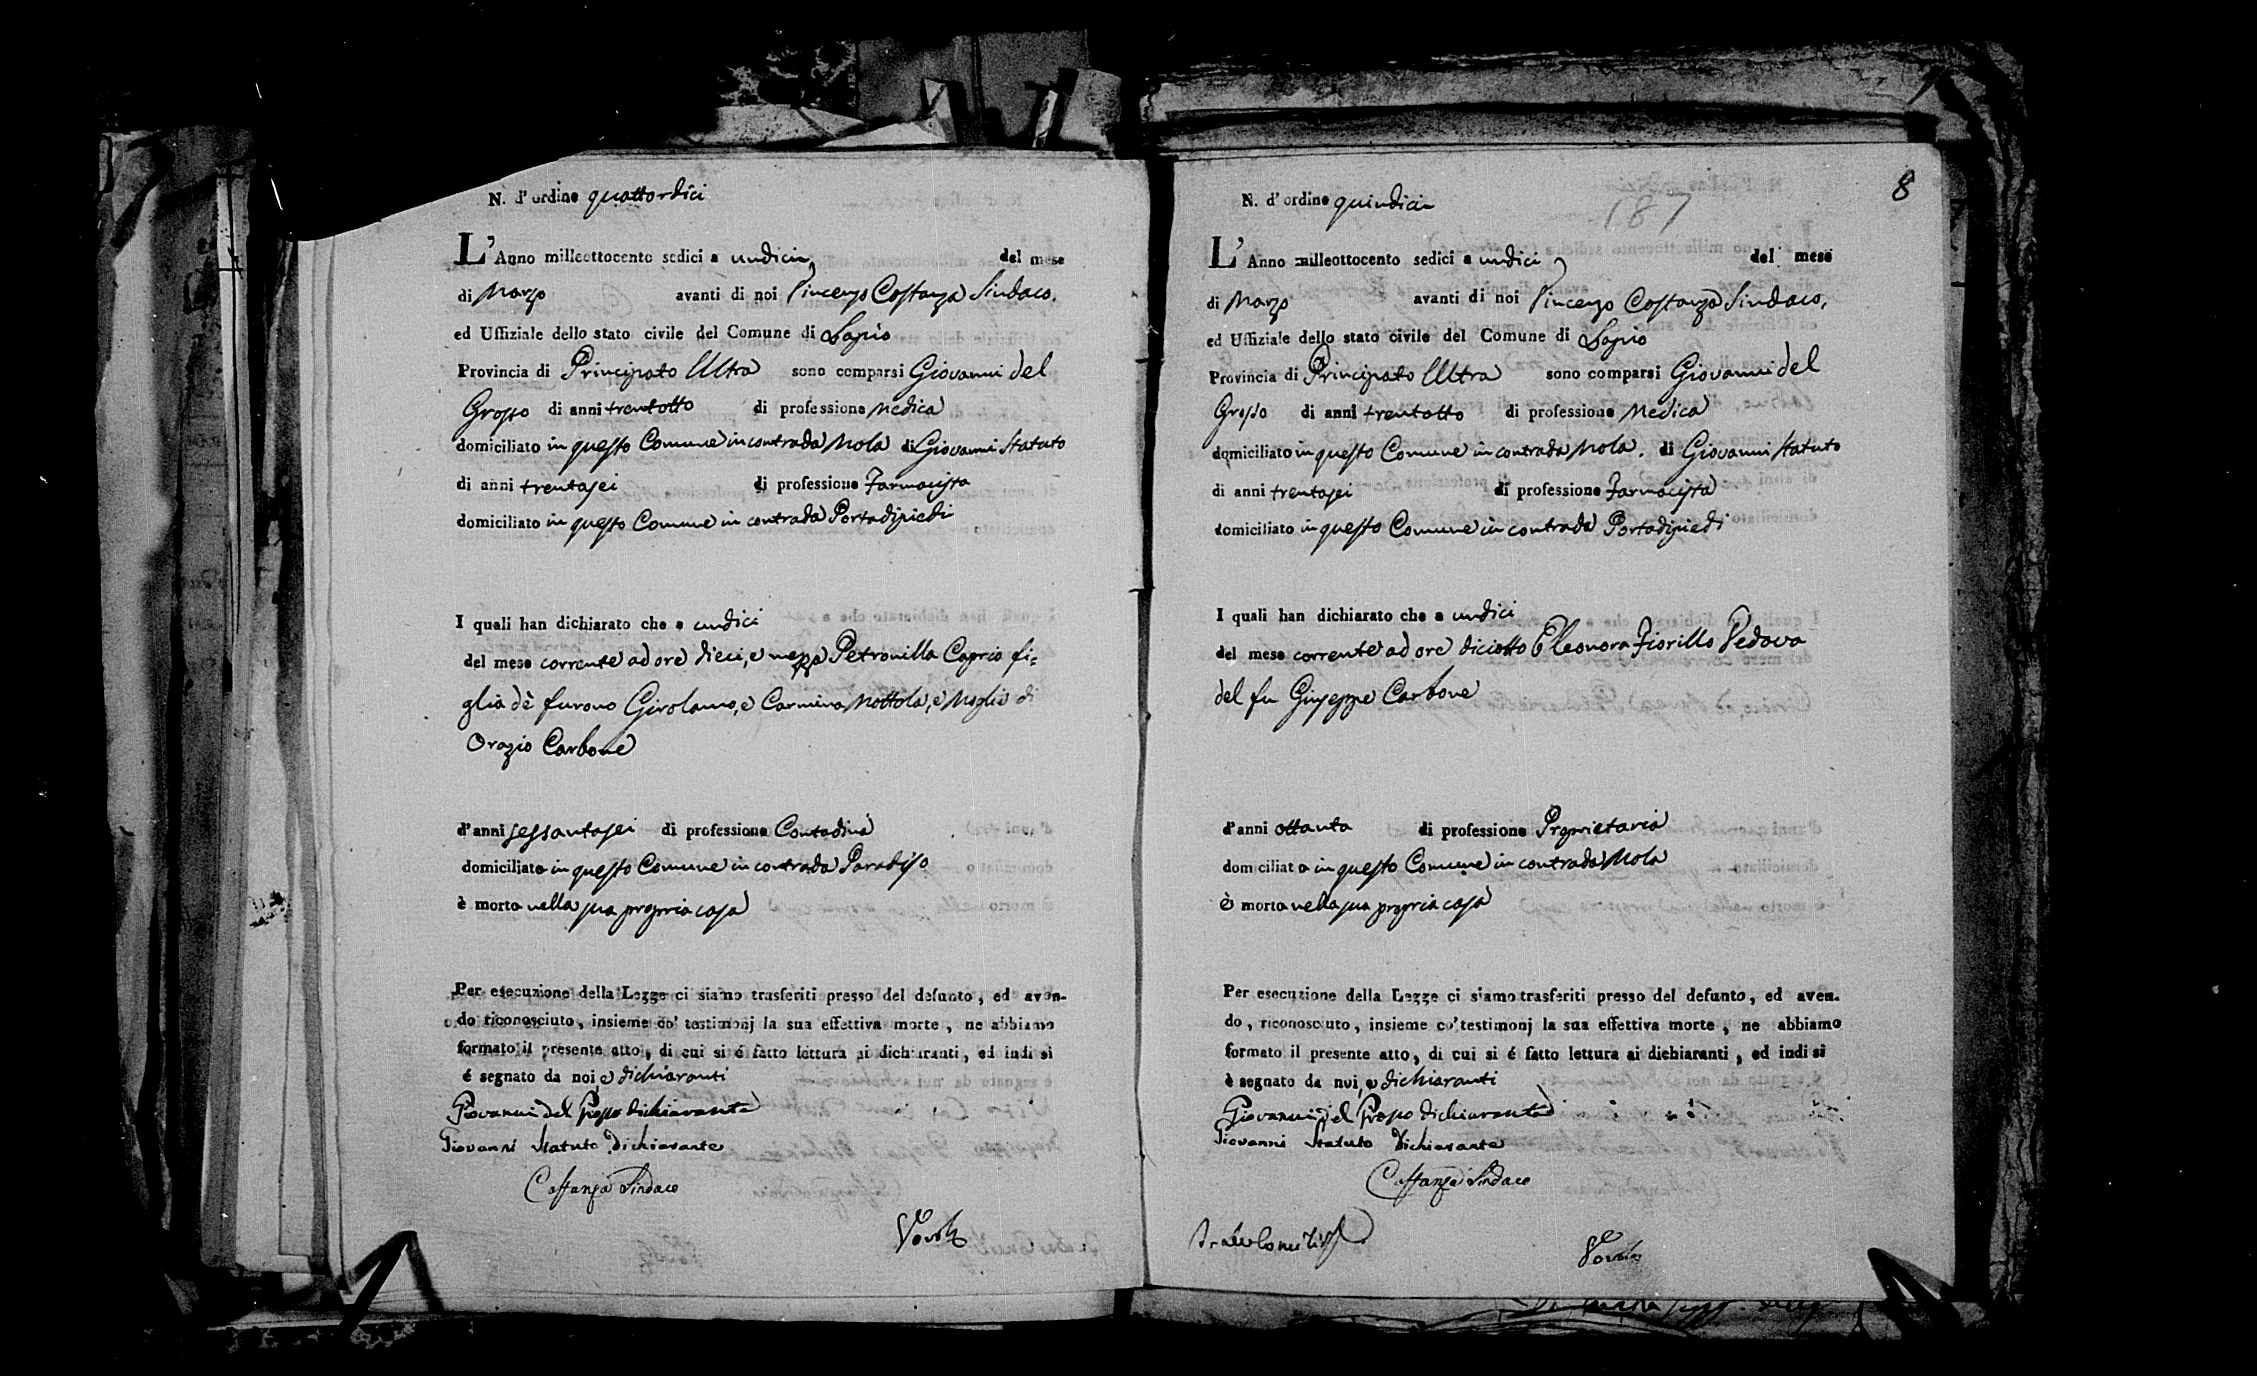 N. d'ordine quattordici
L'Anno milleottocento sedici a undici del mese
di Marzo avanti di noi Vincenzo Costanza Sindaco,
ed Uffiziale dello stato civile del Comune di Lapio
Provincia di Principato Ultra sono comparsi Giovanni del
Grosso di anni trentotto di professione Medica
domiciliato in questo Comune in contrada Mola di Giovanni Statuto
di anni trentasei di professione Farmacista
domiciliato in questo Comune in contrada Portadipiedi
I quali han dichiarato che a undici
del mese corrente ad ore dieci, e mezza Petronilla Caprio fi=
glia dè furono Girolamo, e Carmina Mottola, e Moglie di
Orazio Carbone
d'anni sessantasei di professione Contadina
domiciliata in questo Comune in contrada Paradiso
è morta nella sua propria casa
Per esecuzione della Legge ci siamo trasferiti presso del defunto, ed aven-
do riconosciuto, insieme co' testimonj la sua effettiva morte, ne abbiamo
formato il presente atto, di cui si é fatto lettura ai dichiaranti, ed indi si
é segnato da noi, e dichiaranti
Giovanni del Grosso dichiarante
Giovanni Statuto Dichiarante
Costanza Sindaco
8
N. d'ordine quindici
187
L'Anno milleottocento sedici a undici del mese
di Marzo avanti di noi Vincenzo Costanza Sindaco,
ed Uffiziale dello stato civile del Comune di Lapio
Provincia di Principato Ultra sono comparsi Giovanni del
Grosso di anni trentotto di professione Medica
domiciliato in questo Comune in contrada Mola. di Giovanni Statuto
di anni trentasei di professione Farmacista
domiciliato in questo Comune in contrada Portadipiedi
I quali han dichiarato che a undici
del mese corrente ad ore diciotto Eleonora Fiorillo Vedova
del fu Giuseppe Carbone
d'anni ottanta di professione Proprietaria
domiciliata in questo Comune in contrada Mola
è morta nella sua propria casa
Per esecuzione della Legge ci siamo trasferiti presso del defunto, ed aven-
do, riconosciuto, insieme co' testimonj la sua effettiva morte, ne abbiamo
formato il presente atto, di cui si é fatto lettura ai dichiaranti, ed indi si
è segnato da noi, e dichiaranti
Giovanni del Grosso dichiarante
Giovanni Statuto Dichiarante
Costanza Sindaco